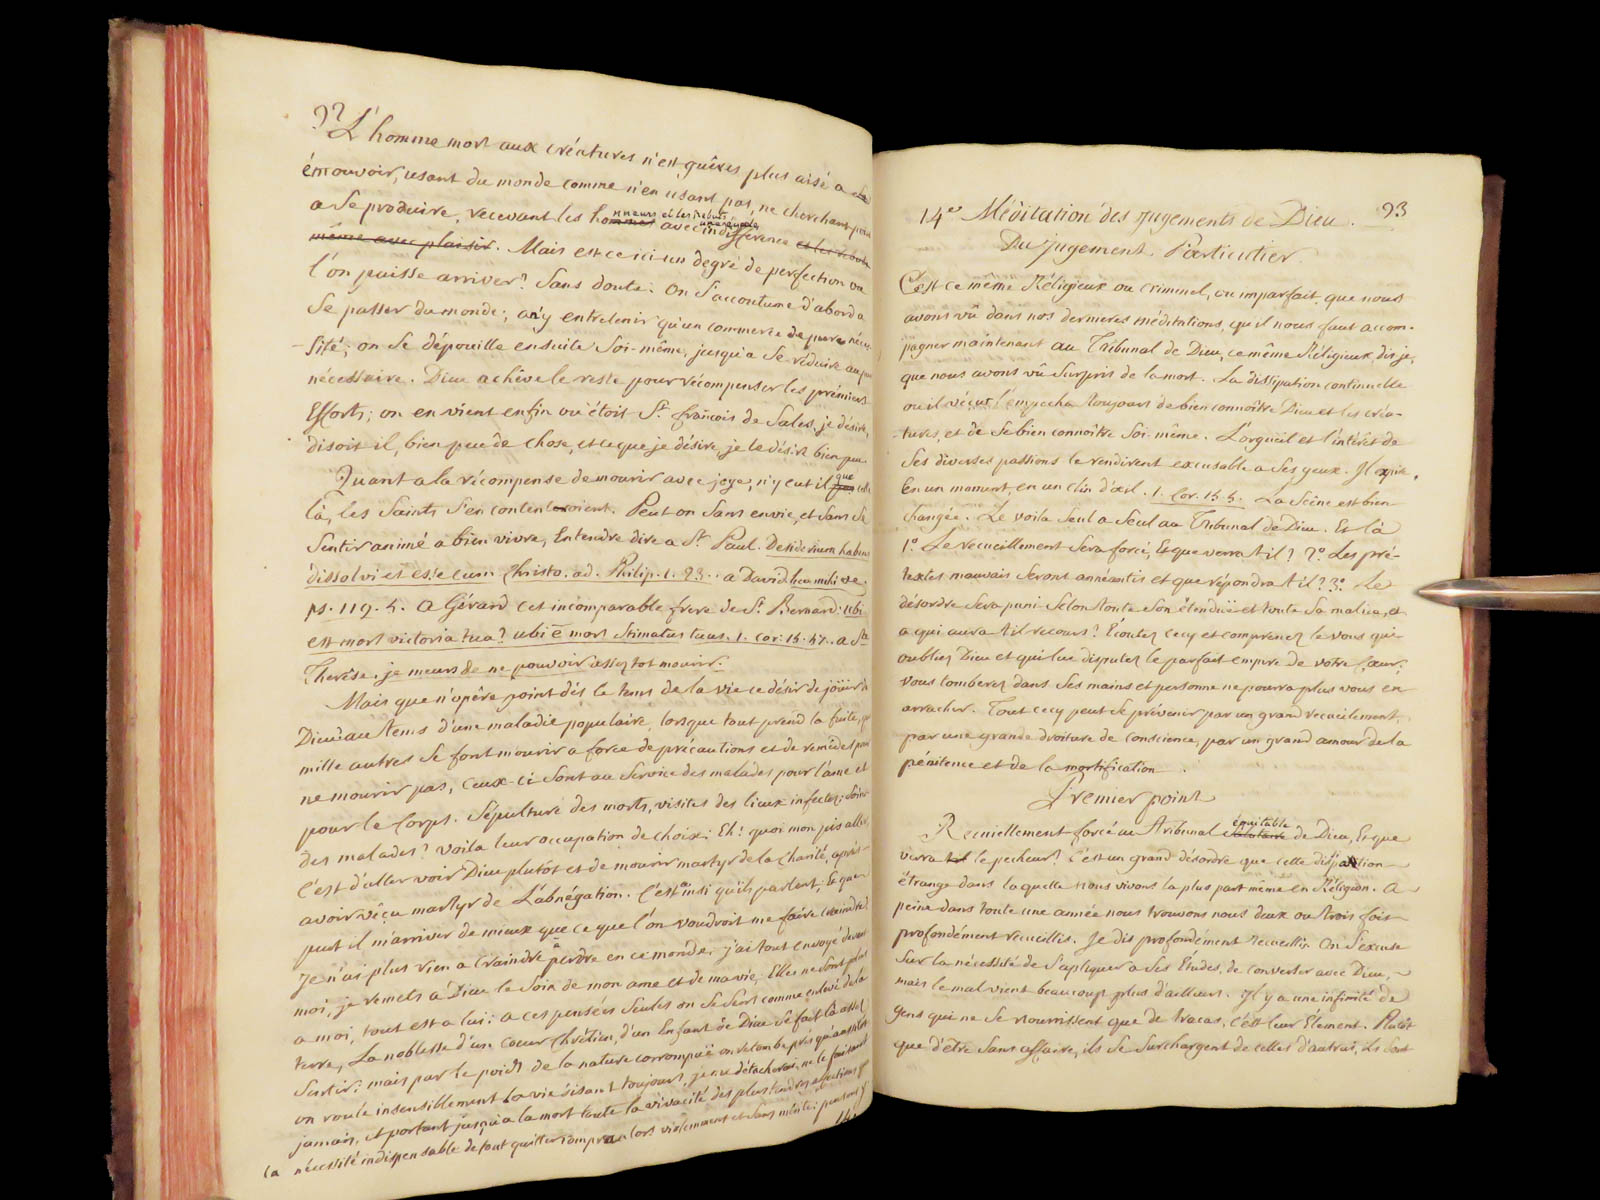 92
L'homme mort aux créatures n'est guêres plus aisé a
émouvoir, usant du monde comme n'en usant pas, ne cherchant point
a se produire, recevant les honneurs et les rebuts avec indifférence et les rebuts
même avec plaisir. Mais est ce ici un degré de perfection ou
l'on puisse arriver? Sans doute. On s'accoutume d'abord a
se passer du monde; a n'y entretenir qu'un commerce de pure néces-
-sité; on se dépouille ensuite soi-même, jusqu'a se réduire au pur
nécessaire. Dieu achêve le reste pour récompenser les prémiers
Efforts; on en vient enfin ou étoit St. françois de Sales, je désire,
disoit il, bien peu de chose, et ce que je désire, je le désire bien peu.
Quant a la récompense de mourir avec joye, n'y eut il que celle
là, les Saints s'en contenteroient. Peut on sans envie, et sans se
sentir animé a bien vivre, Entendre dire a St. Paul. Desiderium habens
dissolvi et esse cum Christo. ad. Philip. 1. 23. a David heu mihi &c.
ps. 119. 5. a Gérard cet incomparable frere de St. Bernard: ubi
est mors victoria tua? ubi ē mors stimulus tuus. 1. Cor. 15. 57. a Ste
Therêse. je meurs de ne pouvoir assez tot mourir.
Mais que n'opêre point dés le tems de la vie ce désir de joüir de
Dieu? au tems d'une maladie populaire lorsque tout prend la fuite, que
mille autres se font mourir a force de précautions et de remêdes pour
ne mourir pas, Ceux-ci sont au service des malades pour l'ame et
pour le Corps. Sépulture des morts, visites des lieux infectez; soins
des malades? voila leur occupation de choix: Eh! quoi mon pis aller,
C'est d'aller voir Dieu plutot et de mourir martyr de la Charité, aprés-
avoir vêcu martyr de L'abnégation. C'est ainsi qu'ils parlent; Et que
peut il m'arriver de mieux que ce que l'on voudroit me faire craindre?
Je n'ai plus rien a craindre a perdre en ce monde. j'ai tout envoyé devant
moi, je remets a Dieu le soin de mon ame et de ma vie; Elles ne sont plus
a moi, tout est a lui: a ces pensées seules on se sent comme enlevé de la
terre, La noblesse d'un Cœur Chrétien, d'un Enfant de Dieu se fait là assez
sentir: mais par le poids de la nature corrompuë on retombe,
on roule insensiblement la vie disant toujours, je me détacherai, ne le faisant
jamais, et portant jusqu'a la mort toute la vivacité des plus tendres affections
la nécessité indispensable de tout quitter rompra alors violemment et sans mérite:
93
14e Méditation des Jugements de Dieu.
Du jugement Particulier.
C'est ce même Réligieux ou criminel, ou imparfait que nous
avons vû dans nos dernieres méditations, qu'il nous faut accom-
pagner maintenant au Tribunal de Dieu, ce même Réligieux dis-je,
que nous avons vû surpris de la mort. La dissipation continuelle
ou il vécut l'empecha toujours de bien connoître Dieu et les créa-
-tures, et de se bien connoître soi-même. L'orgueil et l'intérêt de
ses diverses passions le rendirent excusable a ses yeux. Il expire.
En un moment, en un clin d'œil. 1. Cor. 15. 5. La Scêne est bien
changée. Le voila seul a seul au Tribunal de Dieu. Et là
1.o Le recueillement sera forcé, Et que verra t il? 2.o Les pré-
textes mauvais seront anéantis et que répondra t il? 3.o Le
désordre sera puni selon toute son étenduë et toute sa malice, et
a qui aura t il recours? Ecoutez cecy et comprenez le vous qui
oubliez Dieu et qui lui disputez le parfait empire de votre Cœur;
Vous tomberez dans ses mains et personne ne pourra plus vous en
arracher. Tout cecy peut se prévenir par un grand recueillement,
par une grande droiture de conscience, par un grand amour de la
pénitence et de la mortification.
Premier point
Recuiellement forcé au Tribunal équitable salutaire de Dieu, Et que
verra t il le pecheur? C'est un grand désordre que cette dissipation
étrange dans laquelle nous vivons la plus part même en Réligion. A
peine dans toute une année nous trouvons nous deux ou trois fois
profondément recueillis. Je dis profondément recueillis. On s'excuse
sur la nécessité de s'apliquer a ses Etudes, de converser avec Dieu,
mais le mal vient beaucoup plus d'ailleurs. Il y a une infinité de
gens qui ne se nourrissent que de tracas, c'est leur Elément. Plutôt
que d'être sans affaire, ils se surchargent de celles d'autrui, ils sont